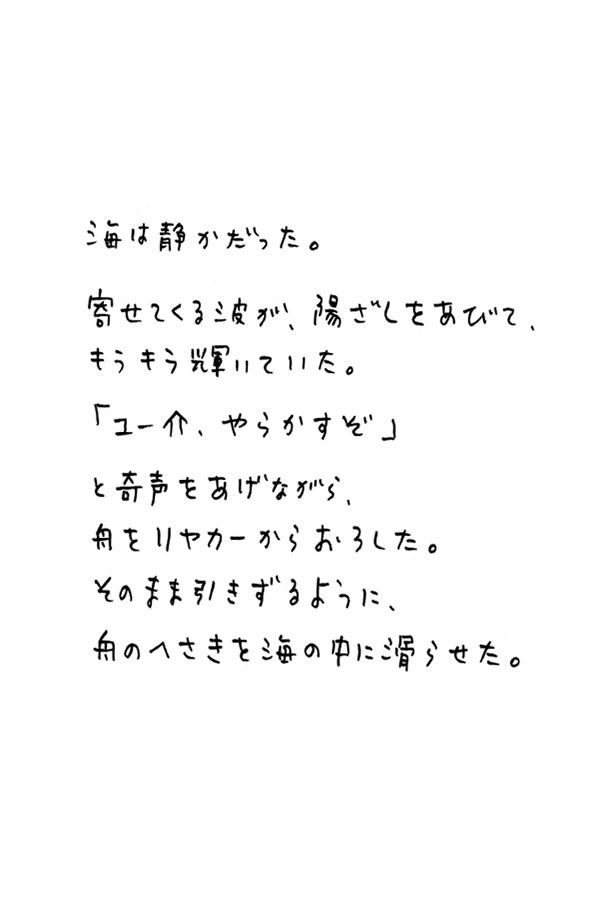 海は静かだった。
寄せてくる波が、陽ざしをあびて、
キラキラ輝いていた。
「ユー介、やらかすぞ」
と奇声をあげながら、
舟をリヤカーからおろした。
そのまま引きずるように、
舟のへさきを海の中に滑らせた。